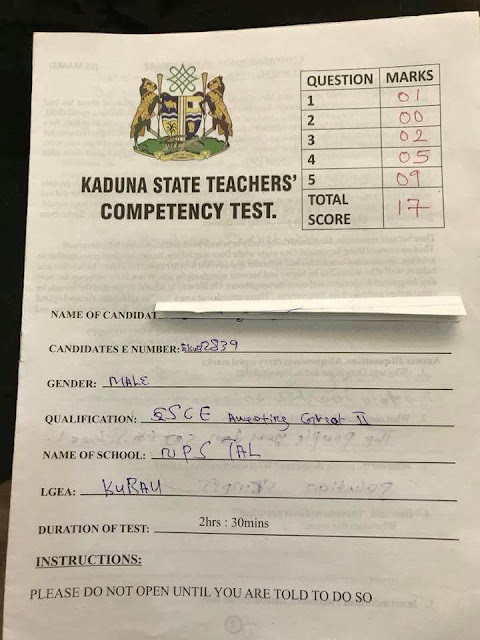 QUESTION MARKS
1 01
2 00
3 02
4 05
5 09
TOTAL SCORE 17
KADUNA STATE TEACHERS'
COMPETENCY TEST.
NAME OF CANDIDAT
CANDIDATES E NUMBER: 2839
GENDER: MALE
QUALIFICATION: SSCE Awaiting Great II
NAME OF SCHOOL: NPS
LGEA: KUBAU
DURATION OF TEST: 2hrs : 30mins
INSTRUCTIONS:
PLEASE DO NOT OPEN UNTIL YOU ARE TOLD TO DO SO